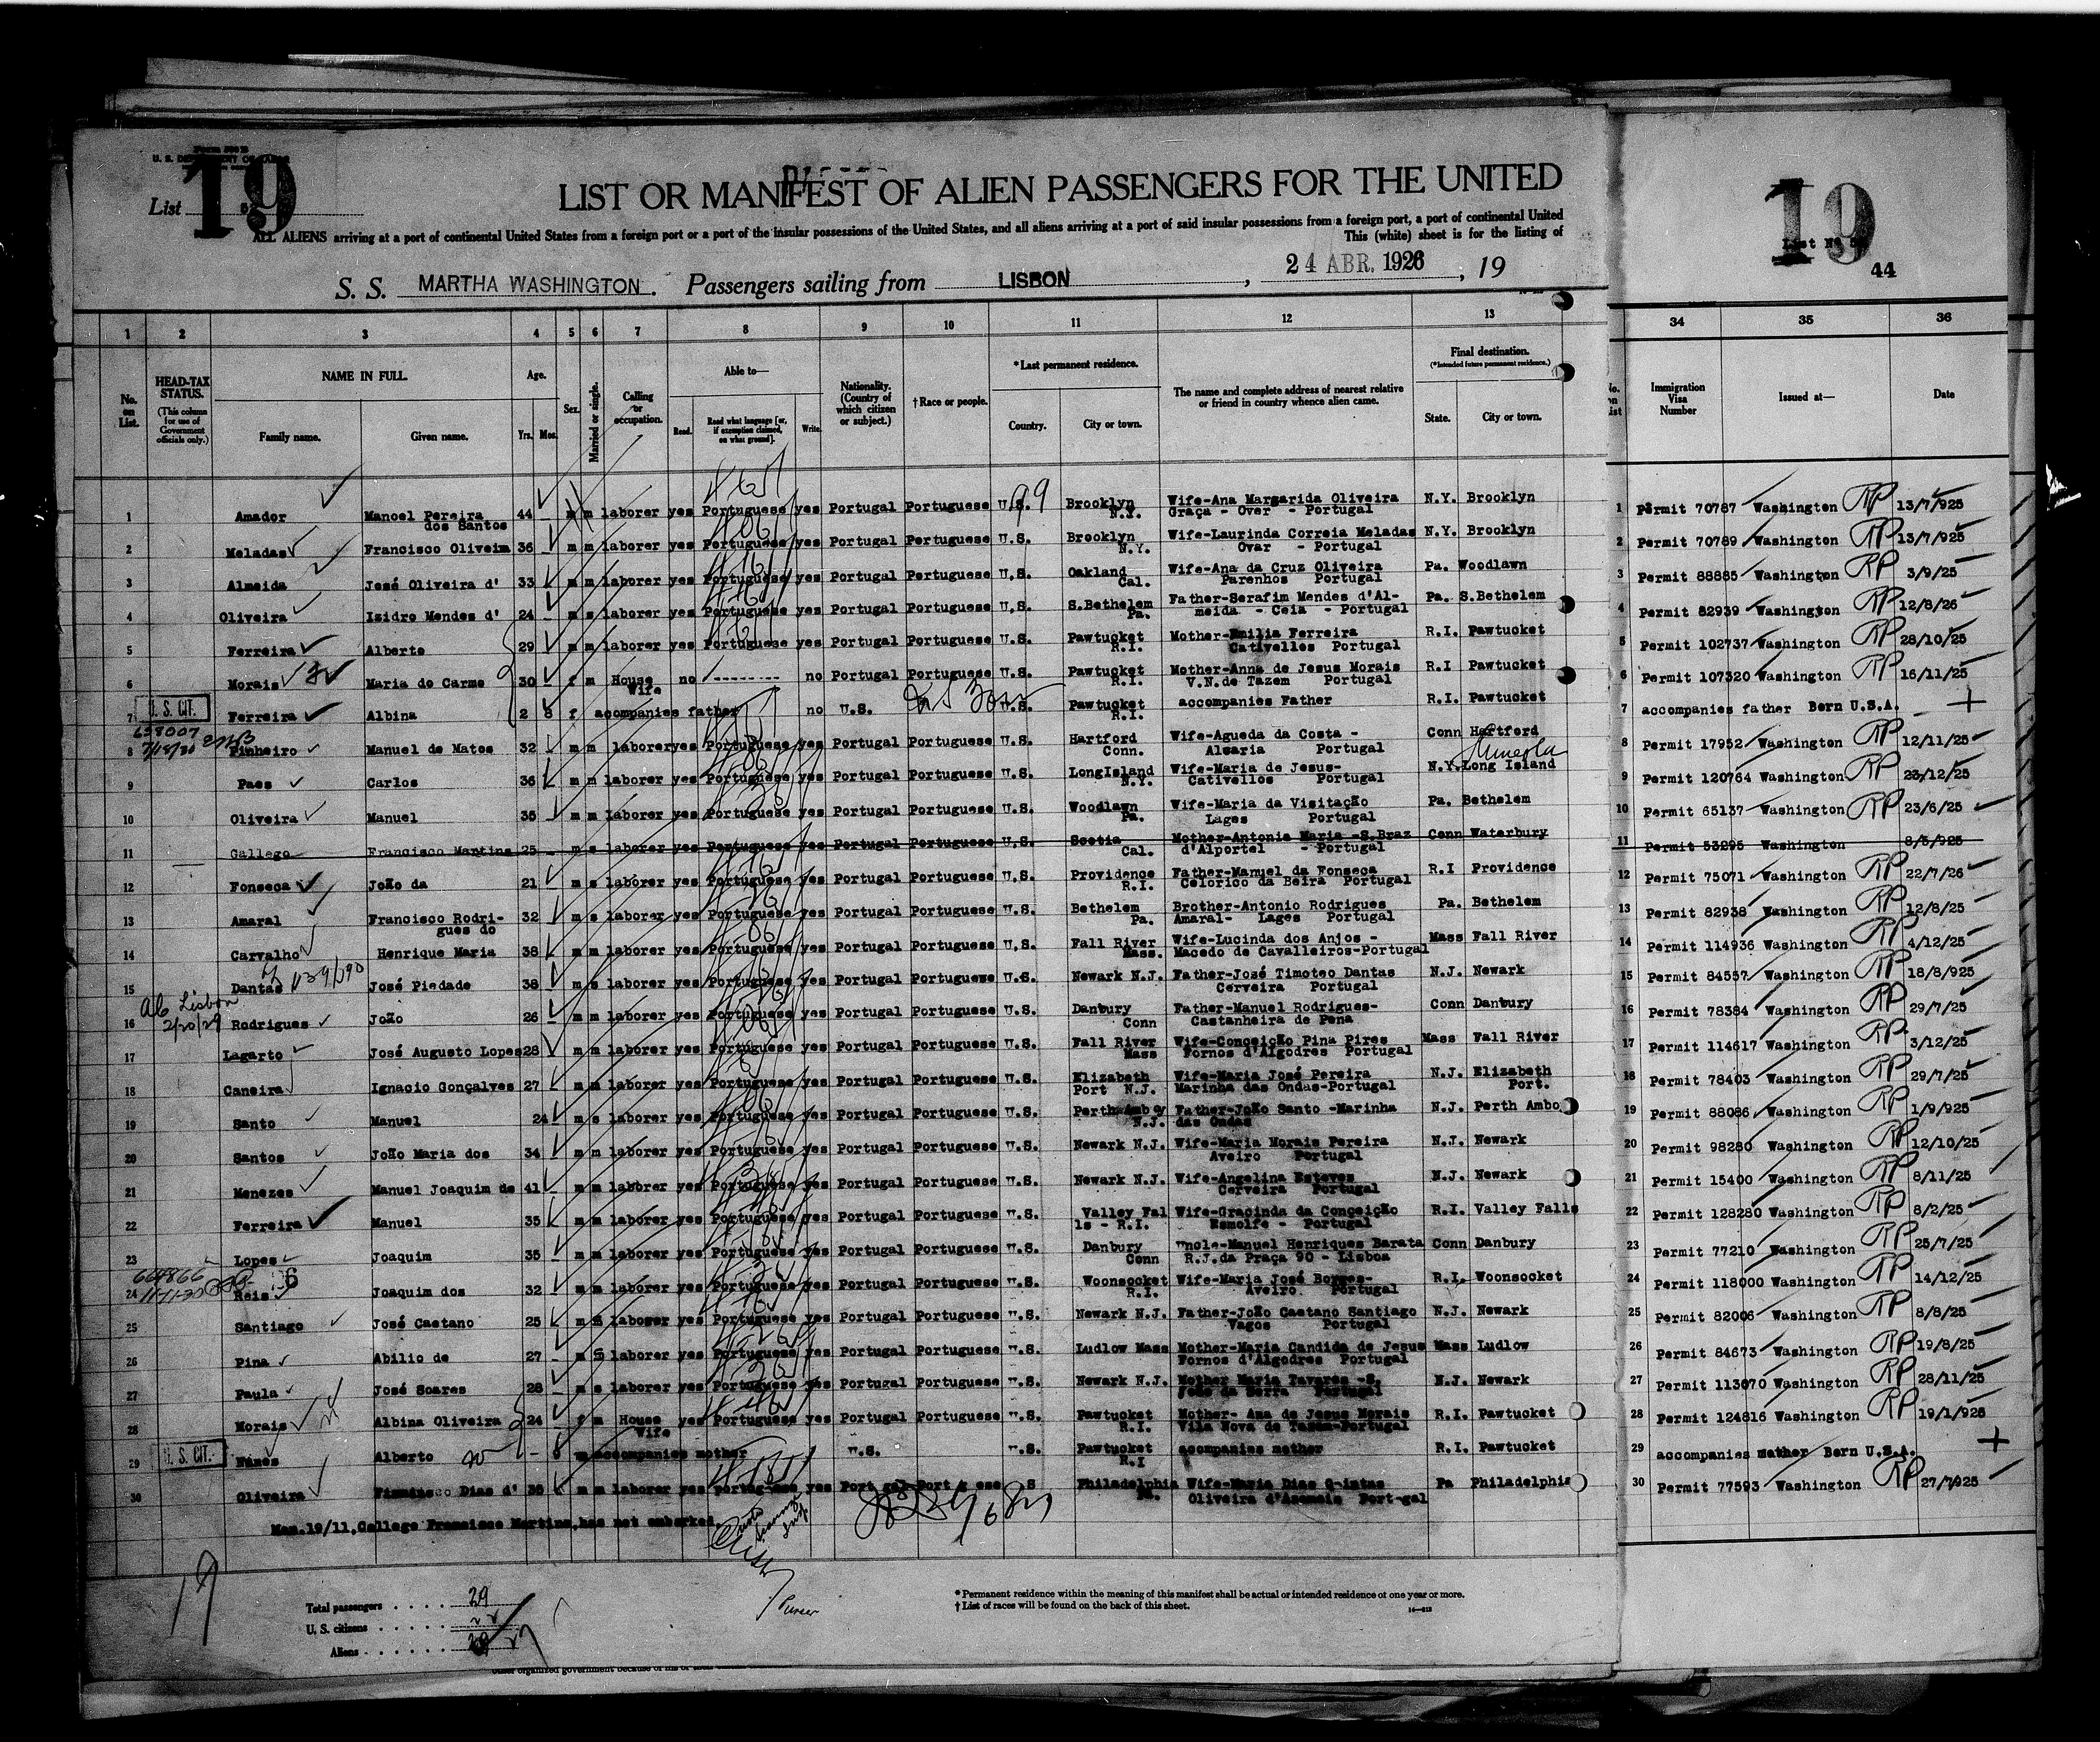 Form 500 B
U. S. DEPARTMENT OF LABOR
List 19
LIST OR MANIFEST OF ALIEN PASSENGERS FOR THE UNITED
ALL ALIENS arriving at a port of continental United States from a foreign port or a port of the insular possessions of the United States, and all aliens arriving at a port of said insular possessions from a foreign port, a port of continental United
This (white) sheet is for the listing of
S. S. MARTHA WASHINGTON. Passengers sailing from LISBON, 24 ABR. 1926, 19
19
44
1 2 3 4 5 6 7 8 9 10 11 12 13 34 35 36
No. on List.
HEAD-TAX STATUS. (This column for use of Government officials only.)
NAME IN FULL.
Family name. Given name.
Age. Yrs. Mos.
Sex.
Married or single.
Calling or occupation.
Able to—
Read. Read what language [or, if exemption claimed, on what ground]. Write.
Nationality. (Country of which citizen or subject.)
†Race or people.
*Last permanent residence.
Country. City or town.
The name and complete address of nearest relative or friend in country whence alien came.
Final destination. (*Intended future permanent residence.)
State. City or town.
Immigration Visa Number Issued at— Date
1 Amador Manoel Pereira dos Santos 44 m m laborer yes Portuguese yes Portugal Portuguese U.S. Brooklyn N.Y. Wife-Ana Margarida Oliveira Graça - Over - Portugal N.Y. Brooklyn 1 Permit 70787 Washington RP 13/7/925
2 Meladas Francisco Oliveira 36 m m laborer yes Portuguese yes Portugal Portuguese U.S. Brooklyn N.Y. Wife-Laurinda Correia Meladas Ovar - Portugal N.Y. Brooklyn 2 Permit 70789 Washington RP 13/7/925
3 Almeida José Oliveira d' 33 m m laborer yes Portuguese yes Portugal Portuguese U.S. Oakland Cal. Wife-Ana da Cruz Oliveira Parenhos Portugal Pa. Woodlawn 3 Permit 88885 Washington RP 3/9/25
4 Oliveira Izidro Mendes d' 24 m s laborer yes Portuguese yes Portugal Portuguese U.S. S.Bethelem Pa. Father-Serafim Mendes d'Almeida - Ceia - Portugal Pa. S.Bethelem 4 Permit 82939 Washington RP 12/8/26
5 Ferreira Alberto 29 m m laborer yes Portuguese yes Portugal Portuguese U.S. Pawtucket R.I. Mother-Emilia Ferreira Cativelles Portugal R.I. Pawtucket 5 Permit 102737 Washington RP 28/10/25
6 Morais Maria do Carmo 30 f m House Wife no -------- no Portugal Portuguese U.S. Pawtucket R.I. Mother-Anna de Jesus Morais V.N.de Tazem Portugal R.I Pawtucket 6 Permit 107320 Washington RP 16/11/25
7 U. S. CIT. Ferreira Albina 2 8 f acompanies father no U.S. U.S. Pawtucket R.I. accompanies Father R.I. Pawtucket 7 accompanies father Born U.S.A.
638007 7/18/30
8 Pinheiro Manuel de Matos 32 m m laborer yes Portuguese yes Portugal Portuguese U.S. Hartford Conn. Wife-Agueda da Costa - Alsaria Portugal Conn Hartford 8 Permit 17952 Washington RP 12/11/25
9 Paes Carlos 36 m m laborer yes Portuguese yes Portugal Portuguese U.S. LongIsland N.Y. Wife-Maria de Jesus- Cativellos Portugal N.Y. Long Island Mineola 9 Permit 120764 Washington RP 23/12/25
10 Oliveira Manuel 35 m m laborer yes Portuguese yes Portugal Portuguese U.S. Woodlawn Pa. Wife-Maria da Visitação Lages Portugal Pa. Bethelem 10 Permit 65137 Washington RP 23/6/25
11 Gallego Francisco Martins 25 m s laborer yes Portuguese yes Portugal Portuguese U.S. Scotia Cal. Mother-Antonia Maria -S.Braz d'Alportel - Portugal Conn Waterbury 11 Permit 53295 Washington 8/5/925
12 Fonseca João da 21 m s laborer yes Portuguese yes Portugal Portuguese U.S. Providence R.I. Father-Manuel da Fonseca Celorico da Beira Portugal R.I Providence 12 Permit 75071 Washington RP 22/7/26
13 Amaral Francisco Rodrigues do 32 m s laborer yes Portuguese yes Portugal Portuguese U.S. Bethelem Pa. Brother-Antonio Rodrigues Amaral- Lages Portugal Pa. Bethelem 13 Permit 82938 Washington RP 12/8/25
14 Carvalho Henrique Maria 38 m m laborer yes Portuguese yes Portugal Portuguese U.S. Fall River Mass. Wife-Lucinda dos Anjos - Macedo de Cavalleiros-Portugal Mass Fall River 14 Permit 114936 Washington RP 4/12/25
15 Dantas José Piedade 38 m s laborer yes Portuguese yes Portugal Portuguese U.S. Newark N.J. Father-José Timoteo Dantas Cerveira Portugal N.J. Newark 15 Permit 84557 Washington RP 18/8/925
Lisbon 2/20/29
16 Rodrigues João 26 m m laborer yes Portuguese yes Portugal Portuguese U.S. Danbury Conn Father-Manuel Rodrigues- Castanheira de Pena Conn Danbury 16 Permit 78384 Washington RP 29/7/25
17 Lagarto José Augusto Lopes 28 m m laborer yes Portuguese yes Portugal Portuguese U.S. Fall River Mass Wife-Conceição Pina Pires Fornos d'Algodres Portugal Mass Fall River 17 Permit 114617 Washington RP 3/12/25
18 Caneira Ignacio Gonçalves 27 m m laborer yes Portuguese yes Portugal Portuguese U.S. Elizabeth Port N.J. Wife-Maria José Pereira Marinha das Ondas-Portugal N.J. Elizabeth Port. 18 Permit 78403 Washington RP 29/7/25
19 Santo Manuel 24 m s laborer yes Portuguese yes Portugal Portuguese U.S. Perth Amboy N.J. Father-João Santo -Marinha das Ondas N.J. Perth Ambo 19 Permit 88086 Washington RP 1/9/925
20 Santos João Maria dos 34 m m laborer yes Portuguese yes Portugal Portuguese U.S. Newark N.J. Wife-Maria Morais Pereira Aveiro Portugal N.J. Newark 20 Permit 98280 Washington RP 12/10/25
21 Menezes Manuel Joaquim de 41 m m laborer yes Portuguese yes Portugal Portuguese U.S. Newark N.J. Wife-Angelina Esteves Cerveira Portugal N.J. Newark 21 Permit 15400 Washington RP 8/11/25
22 Ferreira Manuel 35 m m laborer yes Portuguese yes Portugal Portuguese U.S. Valley Falls - R.I. Wife-Gracinda da Conceição Esmolfe - Portugal R.I. Valley Falls 22 Permit 128280 Washington RP 8/2/25
23 Lopes Joaquim 35 m m laborer yes Portuguese yes Portugal Portuguese U.S. Danbury Conn Uncle-Manuel Henriques Barata R.J.da Praça 90 - Lisboa Conn Danbury 23 Permit 77210 Washington RP 25/7/25
664866 11-1-30
24 Reis Joaquim dos 32 m m laborer yes Portuguese yes Portugal Portuguese U.S. Woonsocket R.I. Wife-Maria José Borges- Aveiro Portugal R.I. Woonsocket 24 Permit 118000 Washington RP 14/12/25
25 Santiago José Caetano 25 m s laborer yes Portuguese yes Portugal Portuguese U.S. Newark N.J. Father-João Caetano Santiago Vagos Portugal N.J. Newark 25 Permit 82006 Washington RP 8/8/25
26 Pina Abilio de 27 m S laborer yes Portuguese yes Portugal Portuguese U.S. Ludlow Mass Mother-Maria Candida de Jesus Fornos d'Algodres Portugal Mass Ludlow 26 Permit 84673 Washington RP 19/8/25
27 Paula José Soares 28 m s laborer yes Portuguese yes Portugal Portuguese U.S. Newark N.J. Mother Maria Tavares -S. João da Serra Portugal N.J. Newark 27 Permit 113070 Washington RP 28/11/25
28 Morais Albina Oliveira 24 f m House Wife yes Portuguese yes Portugal Portuguese U.S. Pawtucket R.I. Mother- Ana de Jesus Morais Vila Nova de Tazem-Portugal R.I. Pawtucket 28 Permit 124816 Washington RP 19/1/925
29 U. S. CIT. Nunes Alberto - 8 m accompanies mother U.S. U.S. Pawtucket R.I acompanies mother R.I. Pawtucket 29 accompanies mother Born U.S.A.
30 Oliveira Dias d' 36 m m laborer yes Portuguese yes Portugal Portuguese U.S. Philadelphia Pa. Wife-Maria Dias Quintas Oliveira d'Azemeis Portugal Pa Philadelphia 30 Permit 77593 Washington RP 27/7/925
Man.19/11, Gallego Francisco Martins, has not embarked.
Purser
19
Total passengers . . . . . 29
U. S. citizens . . . . . 2
Aliens . . . . . 27
*Permanent residence within the meaning of this manifest shall be actual or intended residence of one year or more.
†List of races will be found on the back of this sheet.